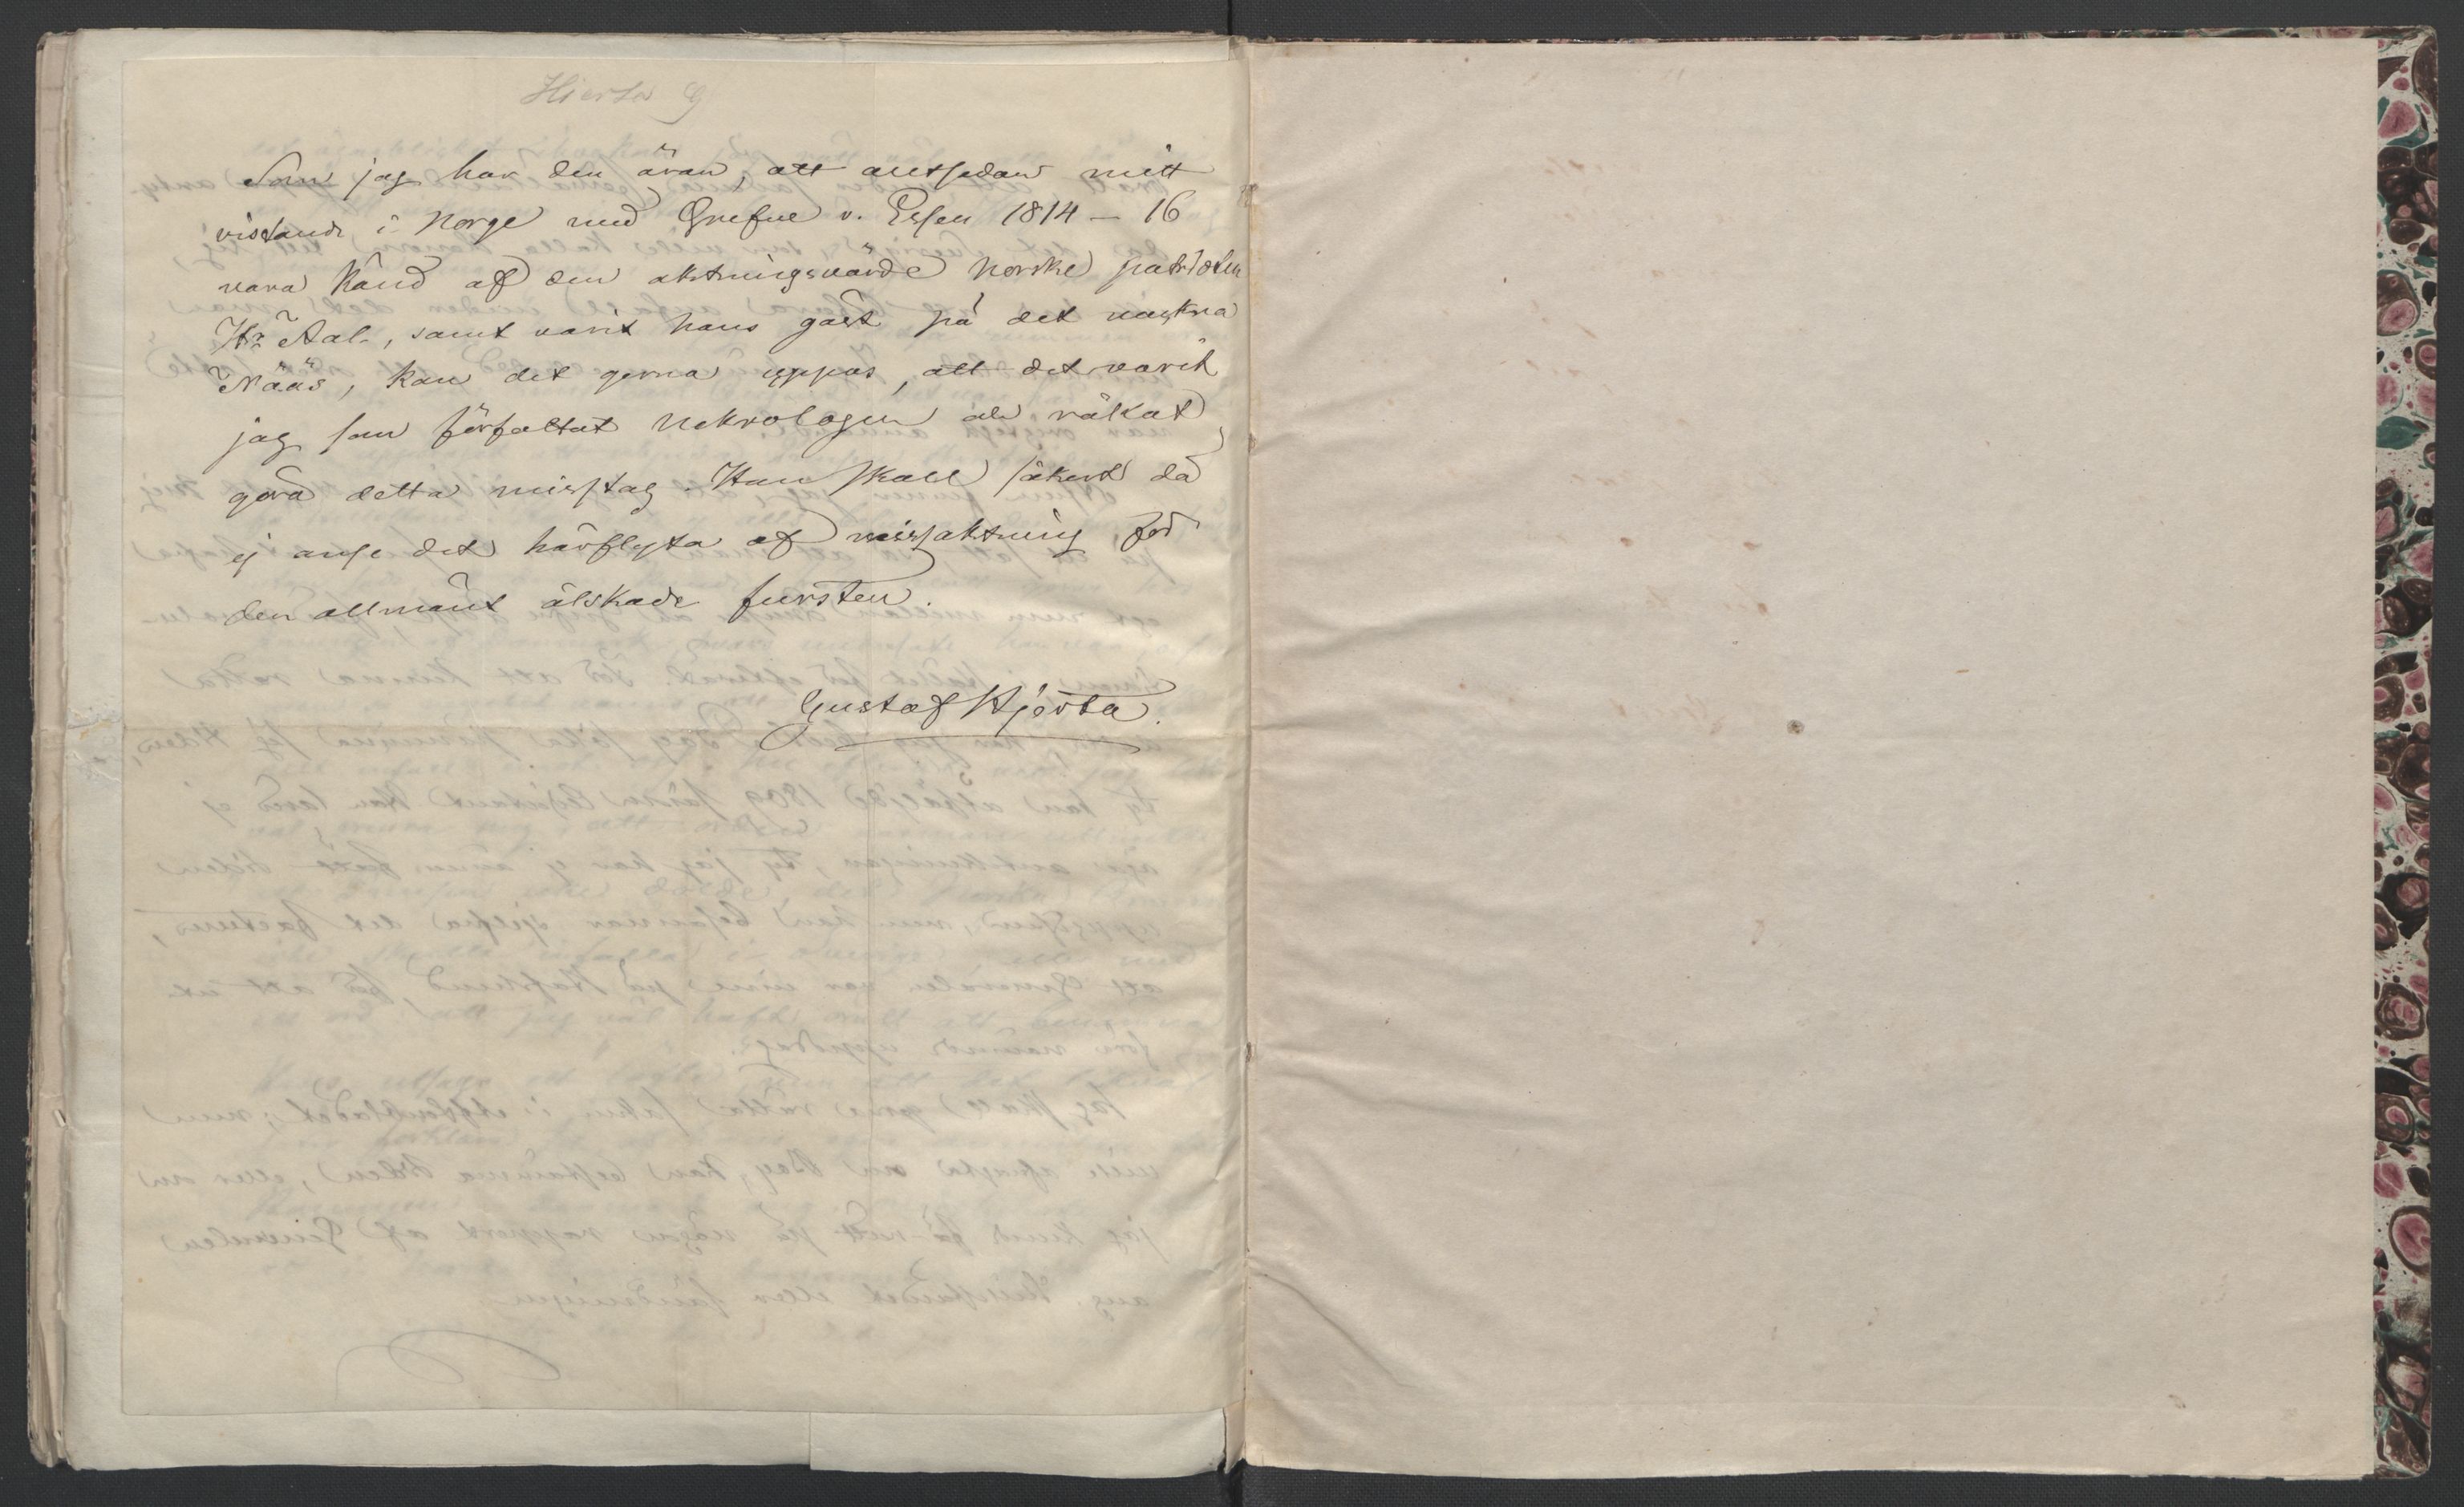 Hierta G
Som jag har den äran, att alltsedan mitt
vistande i Norge med Grefve v. Essen 1814 – 16
vara känd af den aktningsvärde norske patrioten
Hr Aal, samt varit hans gäst på det vackra
Nääs, kan det gerna uppges, att det varit
jag som författat nekrologen och råkat
göra detta misstag. Han skall säkert då
ej anse det härflyta af missaktning för
den allmänt älskade fursten.
Gustaf Hjerta.